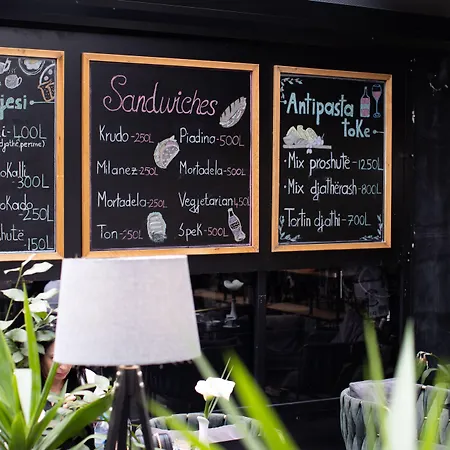 jesi
400L
300L
250L
150L
Sandwiches
Krudo-250L
Piadina-500L
Milanez-250L
Mortadela-500L
Mortadela-250L
Vegjetarian-450L
Ton-250L
Spek-500L
Antipasta
toKe
• Mix proshutë-1250L
• Mix djathërash-800L
Tortin djathi-700L